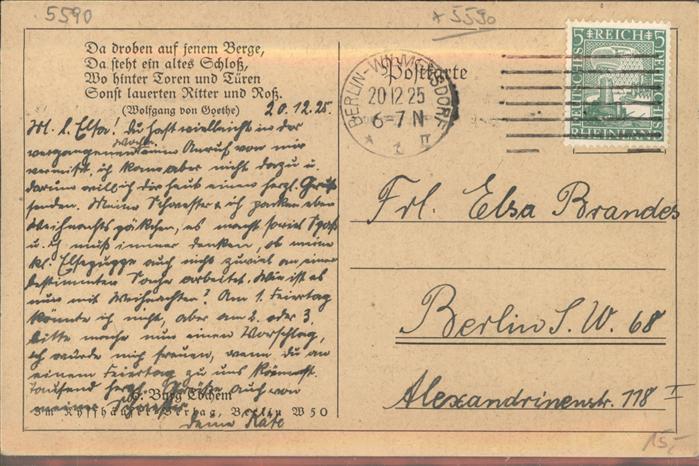 5590
5590
Da droben auf jenem Berge,
Da steht ein altes Schloß,
Wo hinter Toren und Türen
Sonst lauerten Ritter und Roß.
(Wolfgang von Goethe)
20.12.25.
Postkarte
BERLIN-WILMERSDORF
20.12 25
6-7 N
* 1 II
5 REICH 5
DEUTSCHES
RHEINLAND
Ml. l. Elsa! Du hast vielleicht in der
vergangenen Woche einen Anruf von mir
vermißt, ich kam aber nicht dazu u.
darum will ich dir heut einen herzl. Gruß
senden. Meine Schwester & ich packen eben
Weihnachtspäckchen, es macht soviel Spaß
u. ich muß immer denken, ob meine
kl. Elsepuppe auch nicht zuviel an einer
bestimmten Sache arbeitet. Wie ist es
nun mit Weihnachten? Am 1. Feiertag
könnte ich nicht, aber am 2. oder 3.
bitte mache nun einen Vorschlag,
ich würde mich freuen, wenn du an
einem Feiertag zu uns kämest.
Tausend herzl. Grüße auch von
meiner Schwester
deine Käte
Burg Cochem
Im Kyffhäuser-Verlag, Berlin W 50
Frl. Elsa Brandes
Berlin S.W. 68
Alexandrinenstr. 118 I
15,-